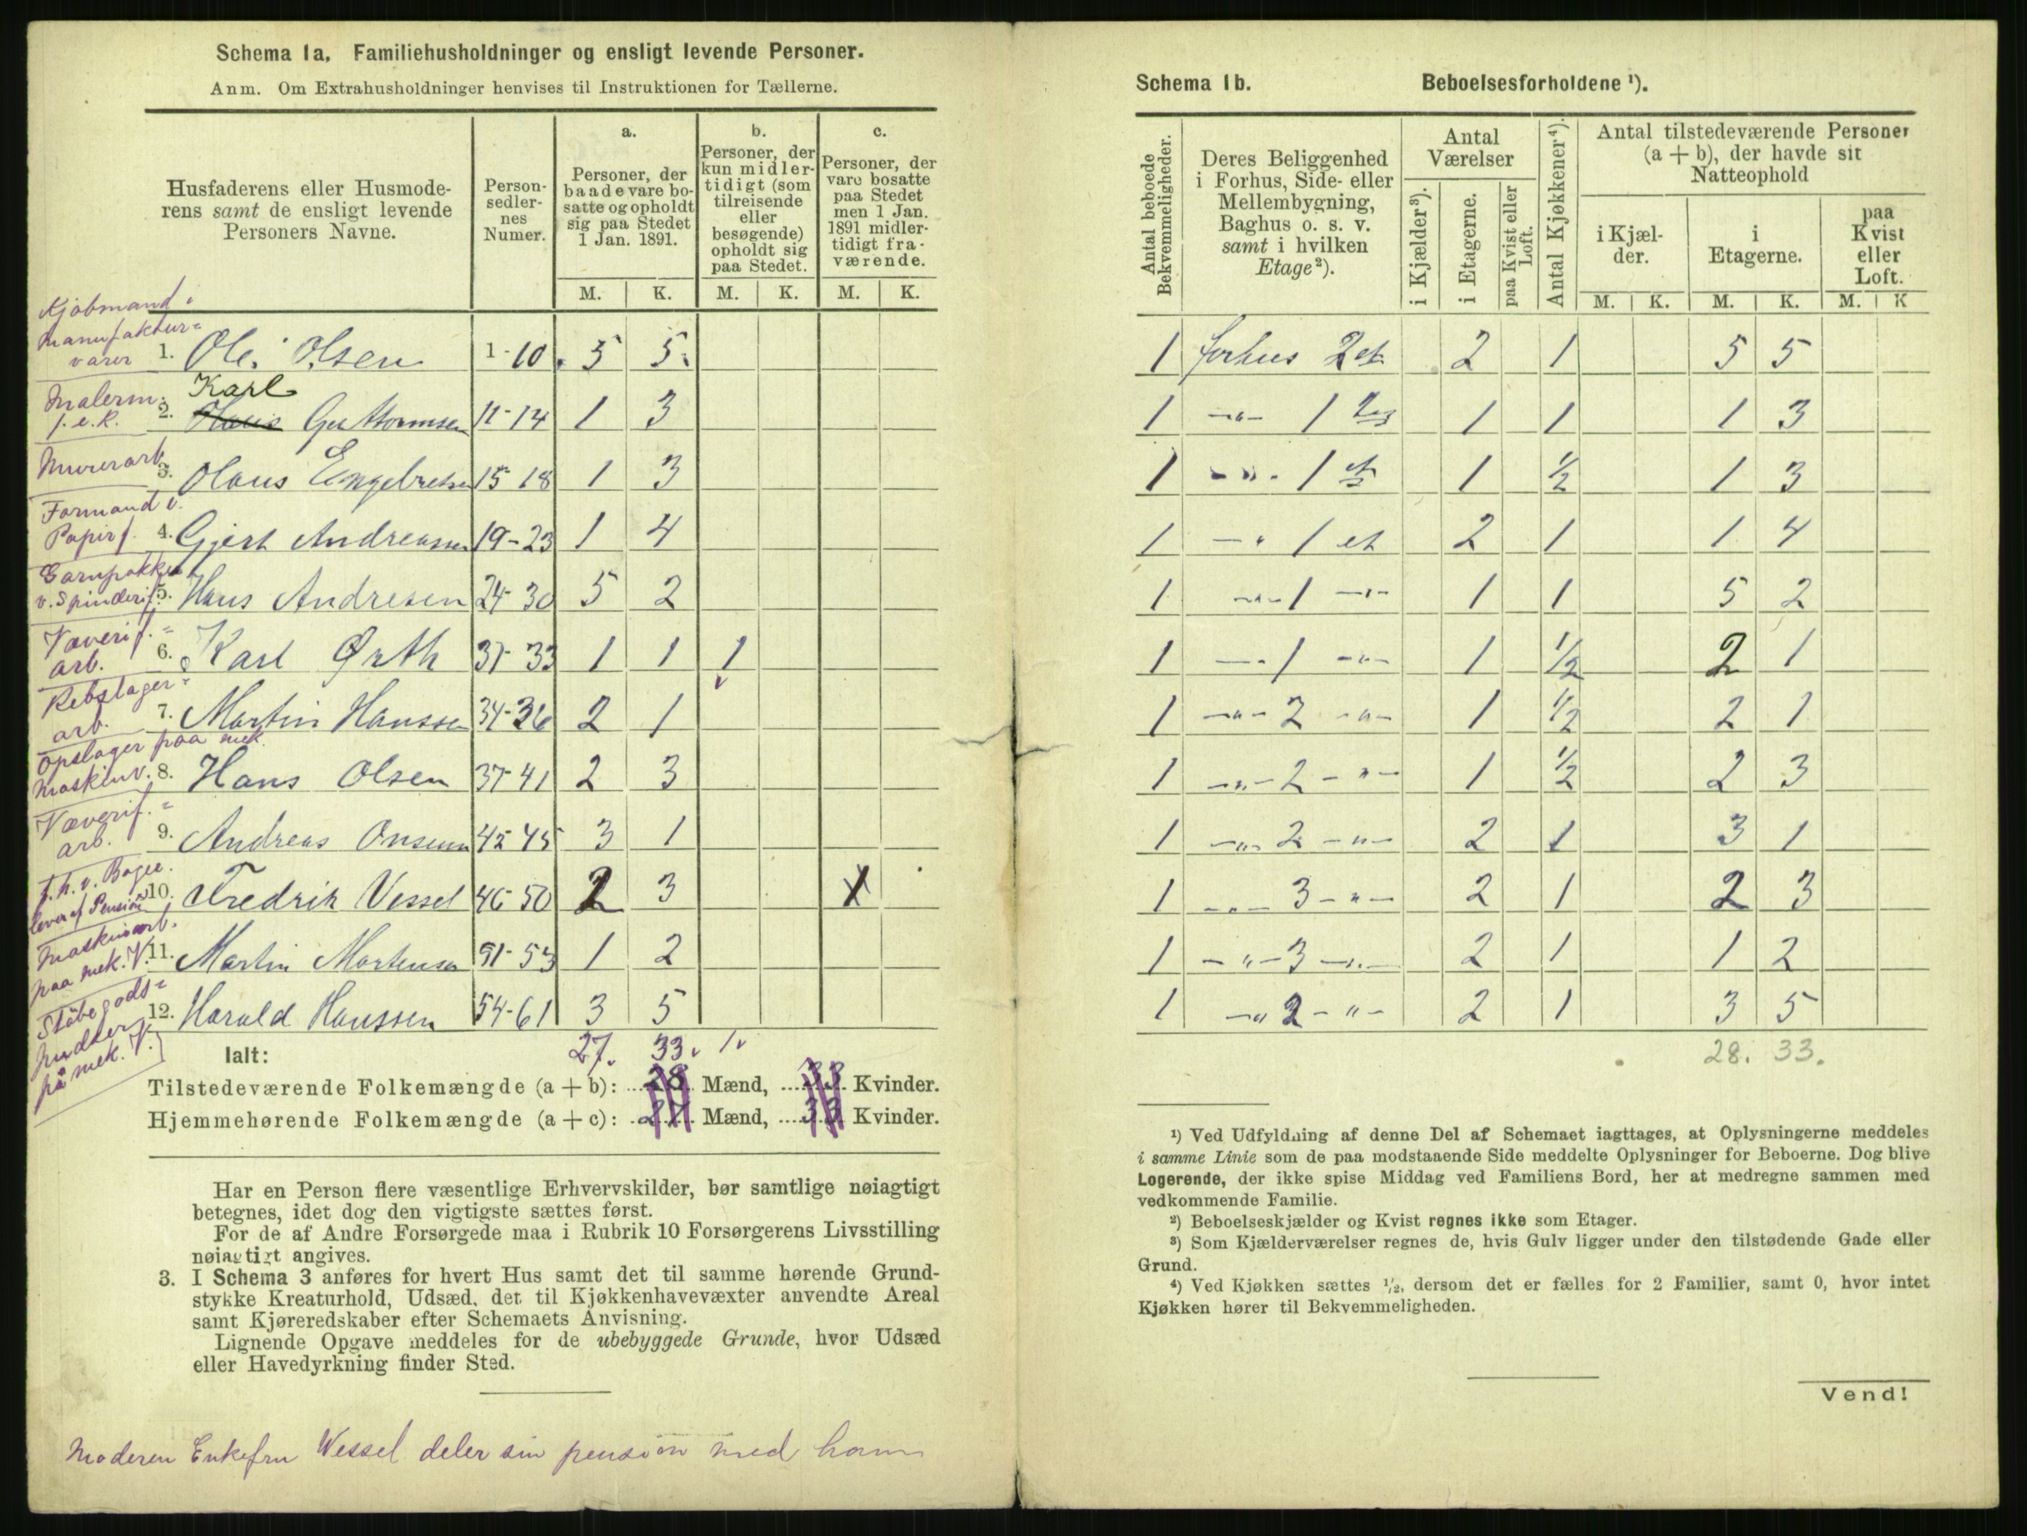 Schema 1a. Familiehusholdninger og ensligt levende Personer.
Anm. Om Extrahusholdninger henvises til Instruktionen for Tællerne.
Husfaderens eller Husmoderens samt de ensligt levende Personers Navne.
Personsedlernes Numer.
a. Personer, der baade vare bosatte og opholdt sig paa Stedet 1 Jan. 1891.
b. Personer, der kun midlertidigt (som tilreisende eller besøgende) opholdt sig paa Stedet.
c. Personer, der vare bosatte paa Stedet men 1 Jan. 1891 midlertidigt fraværende.
M. K. M. K. M. K.
Kjøbmand i Manufakturvarer 1. Ole Olsen 1-10 5 5
Malerm. f. e. R. 2. Karl Guttormsen 11-14 1 3
Murerarb. 3. Olaus Engebretsen 15-18 1 3
Formand v. Papirf. 4. Gjert Andreassen 19-23 1 4
Garnpakker v. Spinderif. 5. Hans Andresen 24-30 5 2
Væverif.= arb. 6. Karl Ørth 31-33 1 1 1
Rebslager= arb. 7. Martin Hanssen 34-36 2 1
Opslager paa mek. Maskinv. 8. Hans Olsen 37-41 2 3
Væverif.= arb. 9. Andreas Onsum 42-45 3 1
f. h. v. Bager. lever af Pension 10. Fredrik Vessel 46-50 2 3
Maskinarb. paa mek. V. 11. Martin Mortensen 51-53 1 2
Støbegods= pudser på mek. V. 12. Harald Hanssen 54-61 3 5
Ialt: 27. 33. 1.
Tilstedeværende Folkemængde (a + b): 28 Mænd, 33 Kvinder.
Hjemmehørende Folkemængde (a + c): 27 Mænd, 33 Kvinder.
Har en Person flere væsentlige Erhvervskilder, bør samtlige nøiagtigt
betegnes, idet dog den vigtigste sættes først.
For de af Andre Forsørgede maa i Rubrik 10 Forsørgerens Livsstilling
nøiagtigt angives.
3. I Schema 3 anføres for hvert Hus samt det til samme hørende Grund-
stykke Kreaturhold, Udsæd, det til Kjøkkenhavevæxter anvendte Areal
samt Kjøreredskaber efter Schemaets Anvisning.
Lignende Opgave meddeles for de ubebyggede Grunde, hvor Udsæd
eller Havedyrkning finder Sted.
Moderen Enkefru Wessel deler sin pension med ham
Schema 1b. Beboelsesforholdene ¹).
Antal beboede Bekvemmeligheder.
Deres Beliggenhed i Forhus, Side- eller Mellembygning, Baghus o. s. v. samt i hvilken Etage ²).
Antal Værelser
i Kjælder ³).
i Etagerne.
paa Kvist eller Loft.
Antal Kjøkkener ⁴).
Antal tilstedeværende Personer (a + b), der havde sit Natteophold
i Kjælder. i Etagerne. paa Kvist eller Loft.
M. K. M. K. M. K
1 forhus 2 et 2 1 5 5
1 -"- 1 1 1 1 3
1 -"- 1 et 1 1/2 1 3
1 -" 1 et 2 1 1 4
1 -"- 1 -"- 1 1 5 2
1 -"- 1 -"- 1 1/2 2 1
1 -"- 2 -"- 1 1/2 2 1
1 -"- 2 -"- 1 1/2 2 3
1 -"- 2 -"- 2 1 3 1
1 -"- 3 -"- 2 1 2 3
1 -"- 3 -"- 2 1 1 2
1 -" 2 -"- 2 1 3 5
28. 33.
¹) Ved Udfyldning af denne Del af Schemaet iagttages, at Oplysningerne meddeles
i samme Linie som de paa modstaaende Side meddelte Oplysninger for Beboerne. Dog blive
Logerende, der ikke spise Middag ved Familiens Bord, her at medregne sammen med
vedkommende Familie.
²) Beboelseskjælder og Kvist regnes ikke som Etager.
³) Som Kjælderværelser regnes de, hvis Gulv ligger under den tilstødende Gade eller
Grund.
⁴) Ved Kjøkken sættes 1/2, dersom det er fælles for 2 Familier, samt 0, hvor intet
Kjøkken hører til Bekvemmeligheden.
Vend!